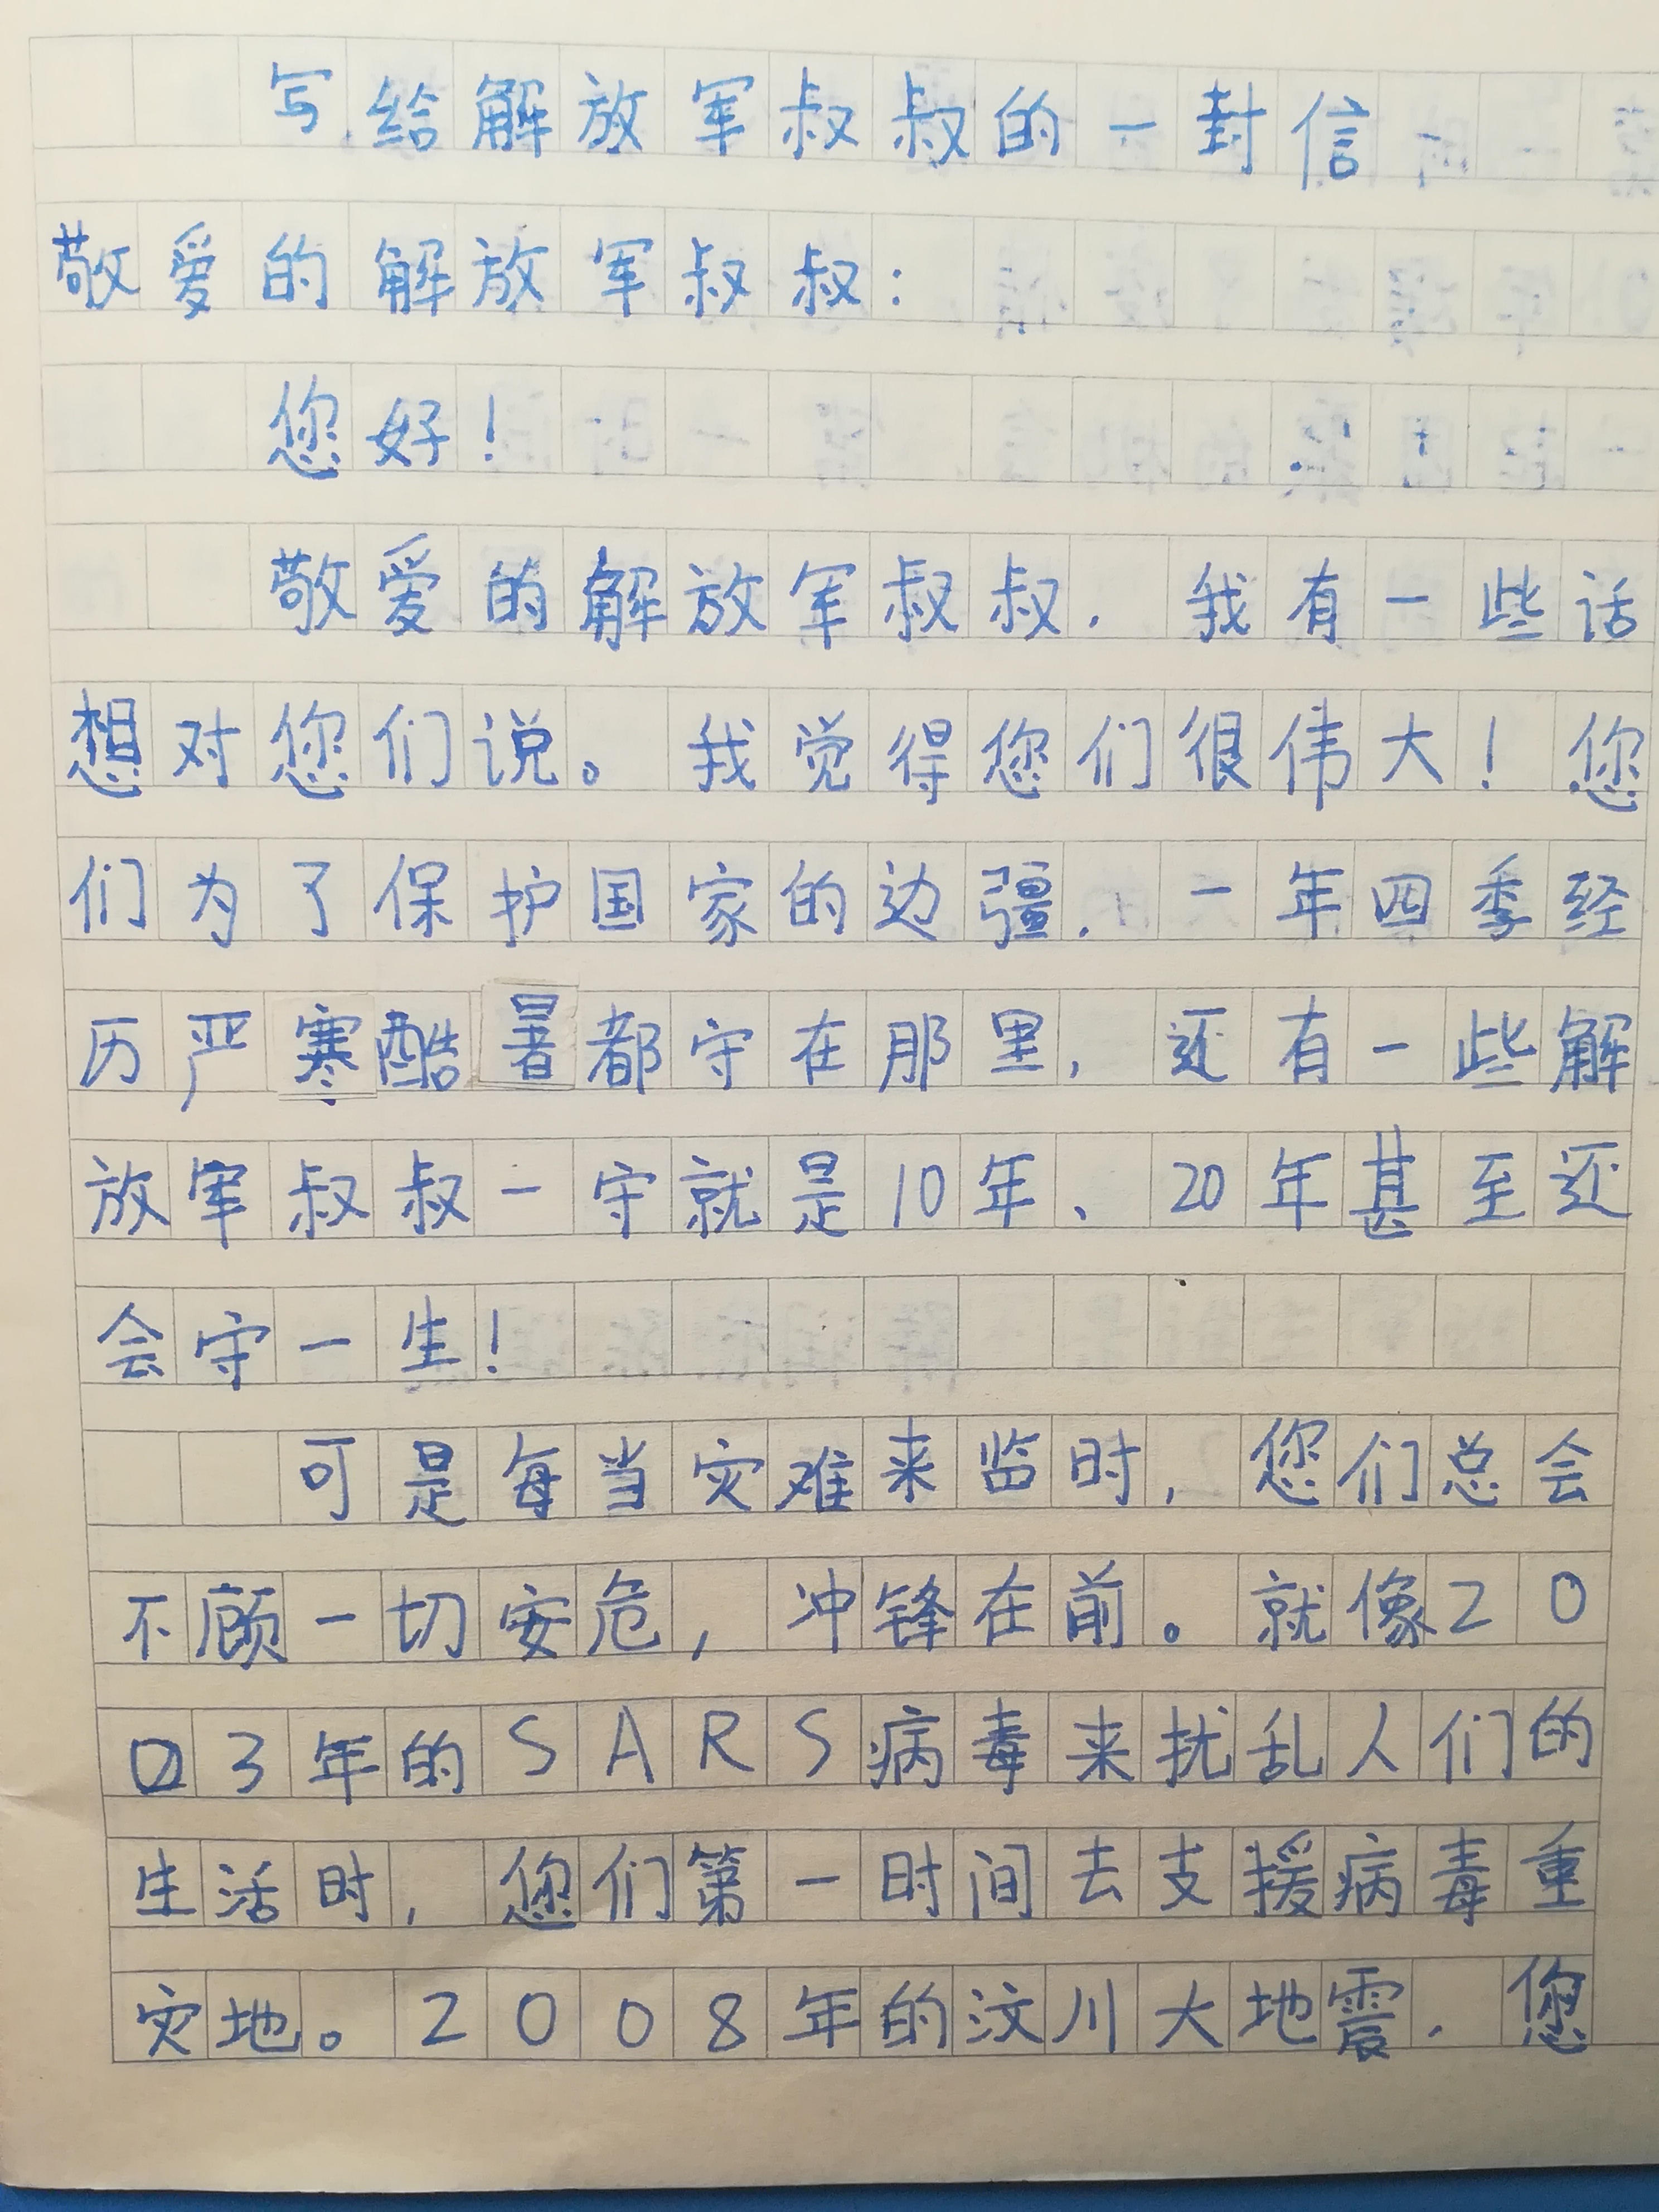 写给解放军叔叔的一封信
敬爱的解放军叔叔：
您好！
敬爱的解放军叔叔，我有一些话
想对您们说。我觉得您们很伟大！您
们为了保护国家的边疆，一年四季经
历严寒酷暑都守在那里，还有一些解
放军叔叔一守就是10年、20年甚至还
会守一生！
可是每当灾难来临时，您们总会
不顾一切安危，冲锋在前。就像20
03年的SARS病毒来扰乱人们的
生活时，您们第一时间去支援病毒重
灾地。2008年的汶川大地震，您